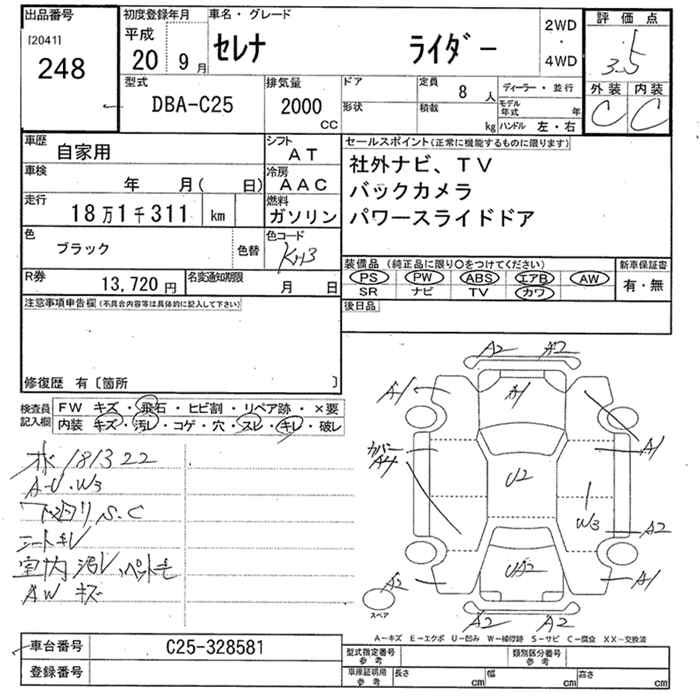 出品番号
[2041]
248
初度登録年月
平成
20 9月
車名・グレード
セレナ ライダー
2WD
・
4WD
評価点
3.5
外装 内装
C C
型式
DBA-C25
排気量
2000
CC
ドア
形状
定員
8人
積載
kg
ディーラー・並行
モデル年式 年
ハンドル 左・右
車歴
自家用
シフト
AT
車検
年 月( 日)
冷房
AAC
走行
18万1千311 km
燃料
ガソリン
色
ブラック
色替
色コード
KH3
R券
13,720円
名変通知期限
月 日
セールスポイント(正常に機能するものに限ります)
社外ナビ、TV
バックカメラ
パワースライドドア
装備品(純正品に限り○をつけてください)
PS PW ABS エアB AW
SR ナビ TV カワ
新車保証書
有・無
後日品
注意事項申告欄(不具合内容等は具体的に記入して下さい)
修復歴 有〔箇所 〕
検査員記入欄
FW キズ・飛石・ヒビ割・リペア跡・×要
内装 キズ・汚レ・コゲ・穴・スレ・キレ・破レ
水 181322
A-U・W3
下廻りS.C
シートキレ
室内汚レ.ペット毛
AW キズ
A2 A2
A1 A1
カバー
A4 A1
U2
W3 A2
UA2
A2 A1
A2 A2
スペア
A-キズ E-エクボ U-凹み W-補修跡 S-サビ C-腐食 XX-交換済
車台番号
C25-328581
登録番号
型式指定番号
参考
類別区分番号
参考
車庫証明用
参考
長さ cm
幅 cm
高さ cm